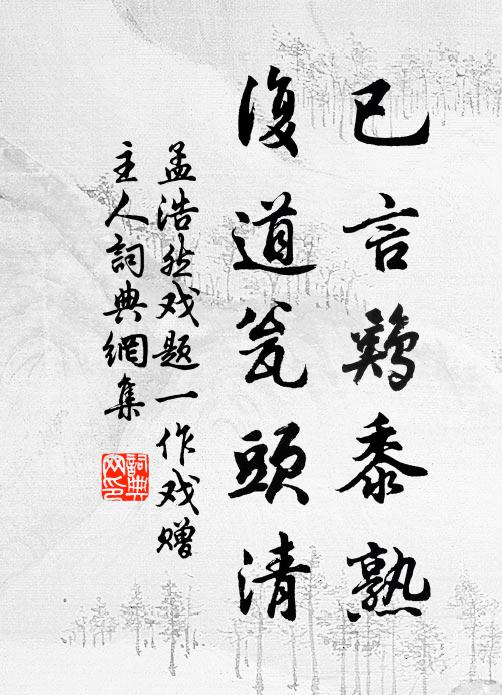 已言鷄黍熟
復道瓮頭清
孟浩然戏題一作戏贈
主人詞典網集
詞典
网印